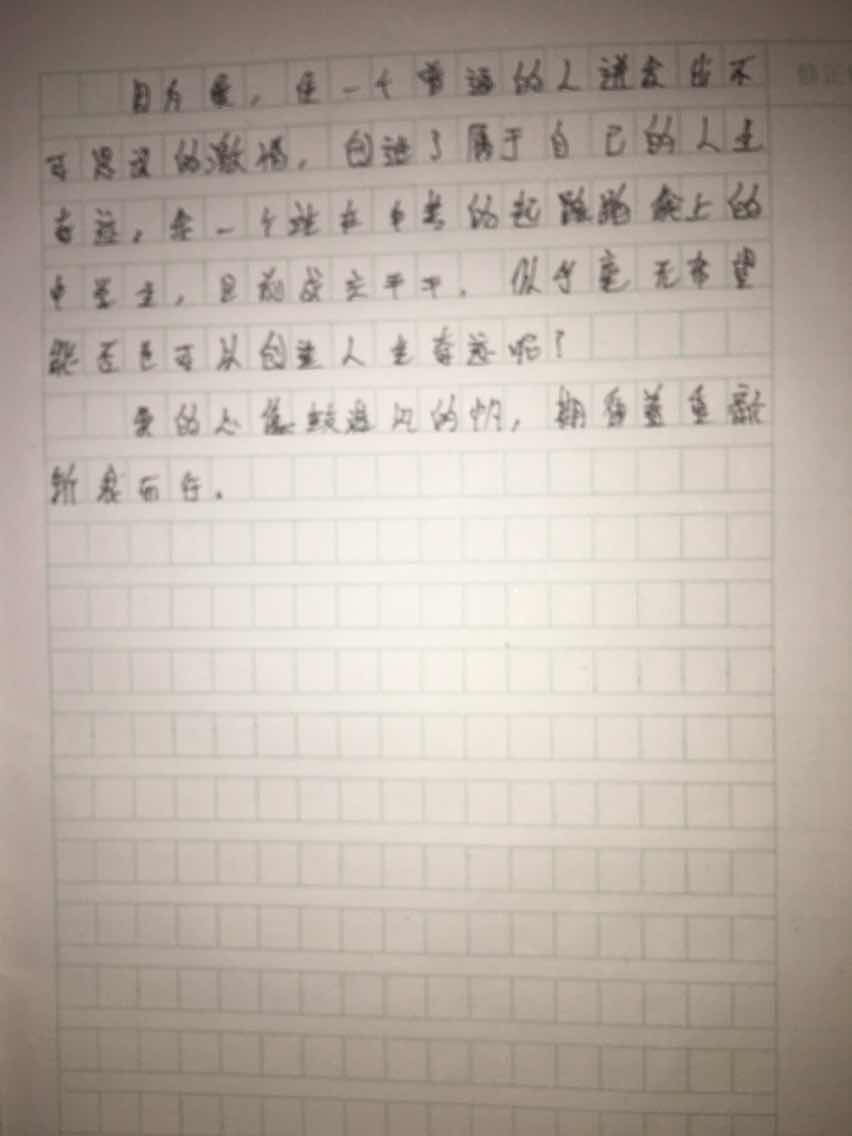 因为爱,使一个普通的人迸发出不
可思议的激情,创造了属于自己的人生
奇迹,在一个站在中考的起跑线上的
中学生,目前成绩平平,似乎毫无希望
能否也可以创造人生奇迹呢?
爱的心像的帆,期待着重新
而行。